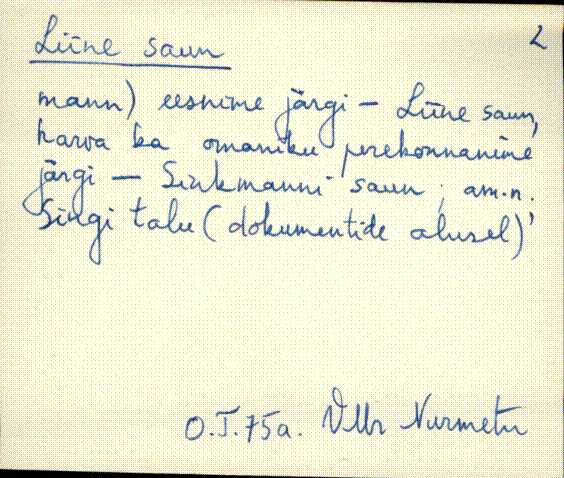 Liine saun 2
mann) eesnime järgi – Liine saun,
harva ka omaniku perekonnanime
järgi – Sinkmanni saun; am.n.
Singi talu (dokumentide alusel)'
O.T. 75a. Nurmetu